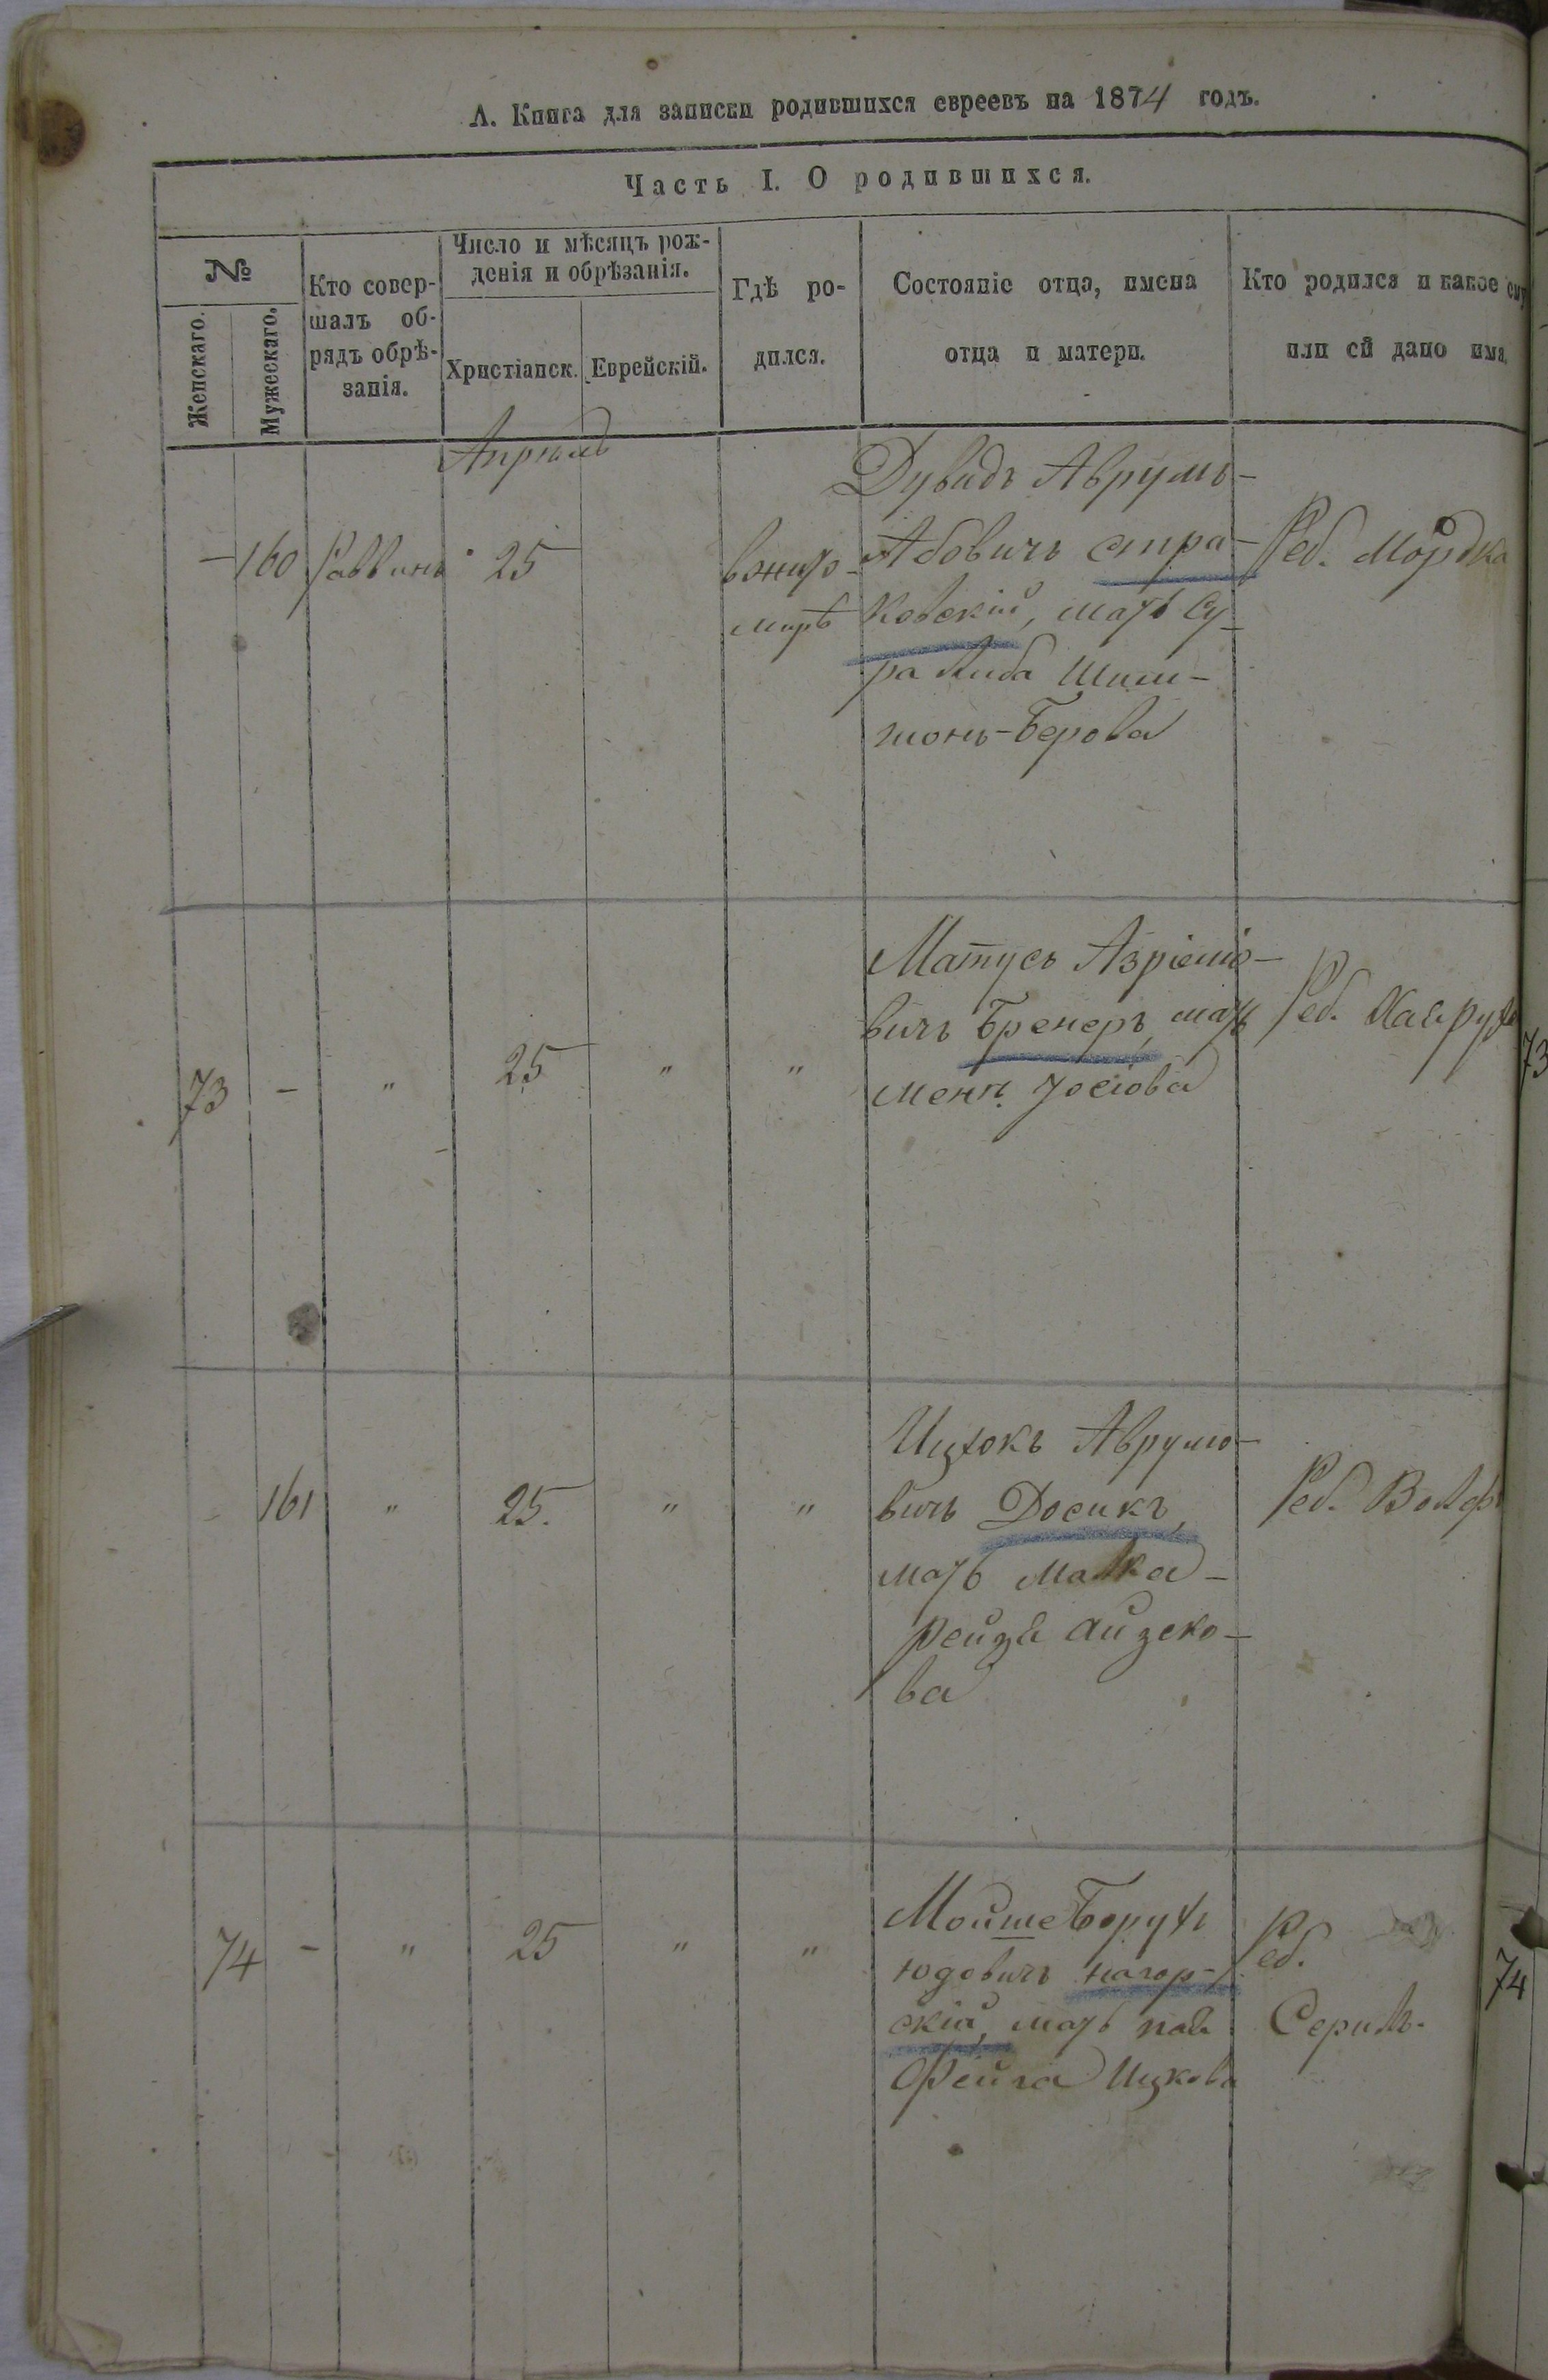 А. Книга для записки родившихся евреевъ на 1874 годъ.
Часть I. О родившихся.
№
Женскаго.
Мужескаго.
Кто совер-
шалъ об-
рядъ обрѣ-
занія.
Число и мѣсяцъ рож-
денія и обрѣзанія.
Христіанск.
Еврейскій.
Гдѣ ро-
дился.
Состояніе отца, имена
отца и матери.
Кто родился и какое ему
или ей дано имя.
Апрѣль
– 160 Раввинъ 25
в жито-
мирѣ
Дувидъ Аврумъ-
Абовичъ Стра-
ковскій, мать Су-
ра Либа Шим-
шонъ-Берова
Реб. Мордко
73 – " 25 " "
Матусъ Азріеліо-
вичъ Бренеръ, мать
Меня Іосіова
Реб.
73
– 161 " 25. " "
Ицхокъ Аврумо-
вичъ Досикъ,
мать Малка-
Рейзя Айзеко-
ва
Реб. Волфъ
74 – " 25 " "
Мойше Борухъ
Юдовичъ Нагор-
скій, мать
Фейга Ицкова
Реб.
Серилъ.
74